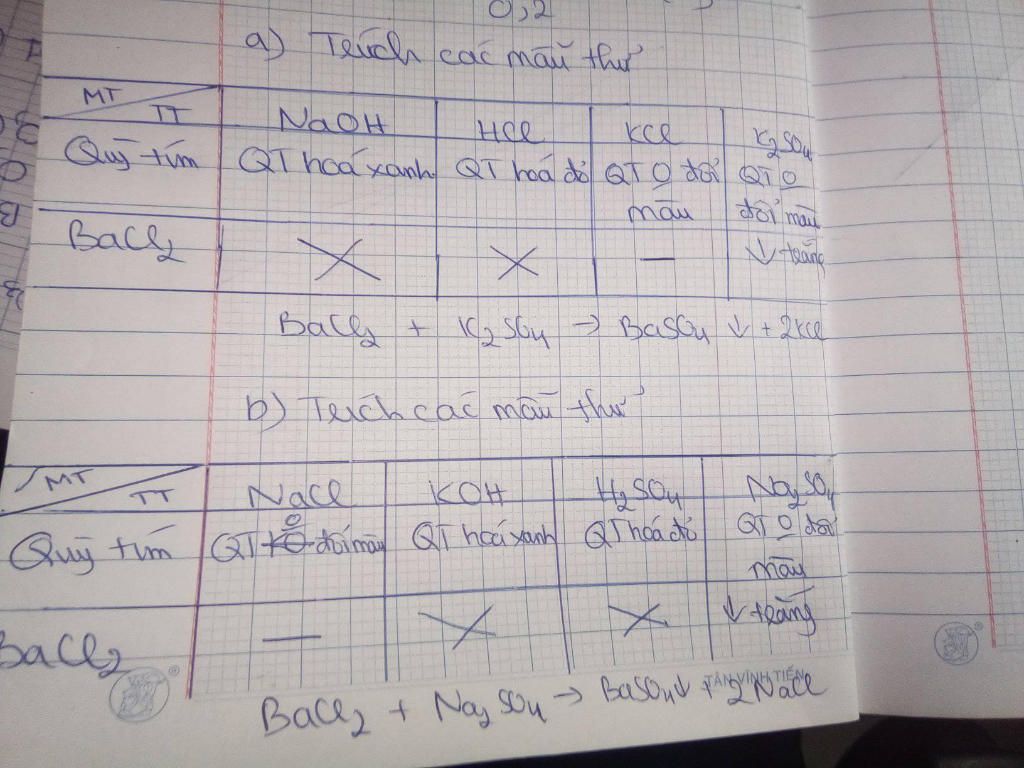 0,2
a) Trích các mẫu thử
MT
TT
NaOH
HCl
KCl
K2SO4
Quỳ tím
QT hoá xanh
QT hoá đỏ
QT O đổi màu
QT O đổi màu
BaCl2
X
X
—
↓ trắng
BaCl2 + K2SO4 → BaSO4 ↓ + 2KCl
b) Trích các mẫu thử
MT
TT
NaCl
KOH
H2SO4
Na2SO4
Quỳ tím
QT O đổi màu
QT hoá xanh
QT hoá đỏ
QT O đổi màu
BaCl2
—
X
X
↓ trắng
TÂN VĨNH TIẾN
BaCl2 + Na2SO4 → BaSO4↓ + 2NaCl